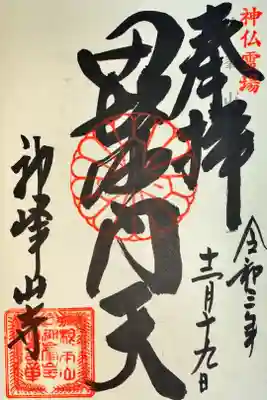 神仏霊場
奉拝
令和三年
十二月十九日
毘沙門天
神峰山寺